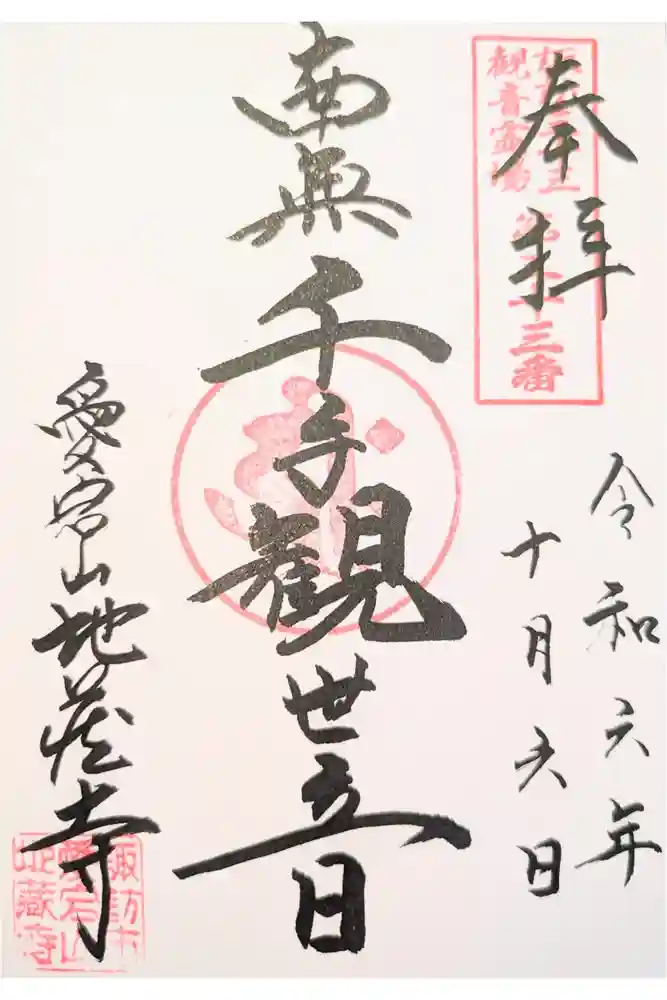 奉拝
観音霊場
十三番
令和六年
十月六日
南無千手観世音
愛宕山地蔵寺
諏訪市
愛宕山
地蔵寺